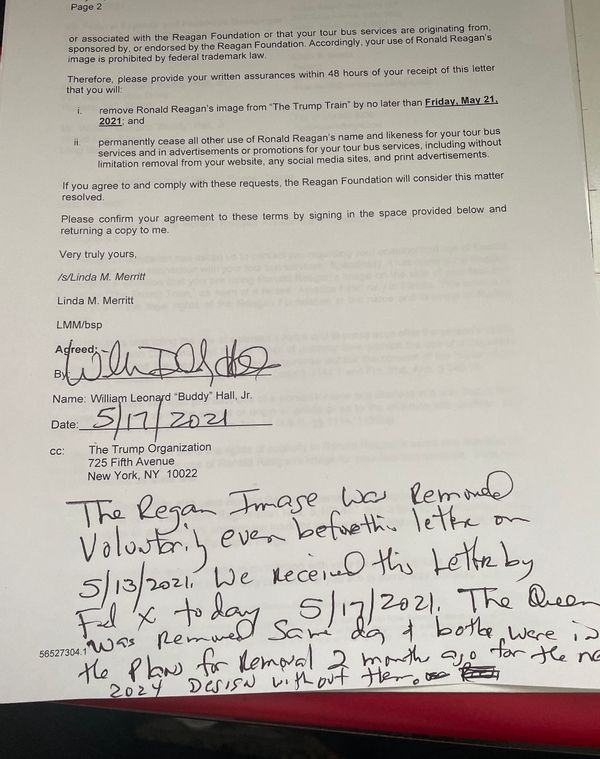 Page 2
or associated with the Reagan Foundation or that your tour bus services are originating from,
sponsored by, or endorsed by the Reagan Foundation. Accordingly, your use of Ronald Reagan's
image is prohibited by federal trademark law.
Therefore, please provide your written assurances within 48 hours of your receipt of this letter
that you will:
i. remove Ronald Reagan's image from "The Trump Train" by no later than Friday, May 21,
2021; and
ii. permanently cease all other use of Ronald Reagan's name and likeness for your tour bus
services and in advertisements or promotions for your tour bus services, including without
limitation removal from your website, any social media sites, and print advertisements.
If you agree to and comply with these requests, the Reagan Foundation will consider this matter
resolved.
Please confirm your agreement to these terms by signing in the space provided below and
returning a copy to me.
Very truly yours,
/s/Linda M. Merritt
Linda M. Merritt
LMM/bsp
Agreed:
By:
Name: William Leonard "Buddy" Hall, Jr.
Date: 5/17/2021
cc: The Trump Organization
725 Fifth Avenue
New York, NY 10022
The Regan Image was Removed
Voluntarily even before this letter on
5/13/2021. We received this Letter by
Fed X today 5/17/2021. The Queen
was Removed Same day & bothe were in
56527304.1
the Plans for Removal 2 month ago for the ne
2024 Design without them.